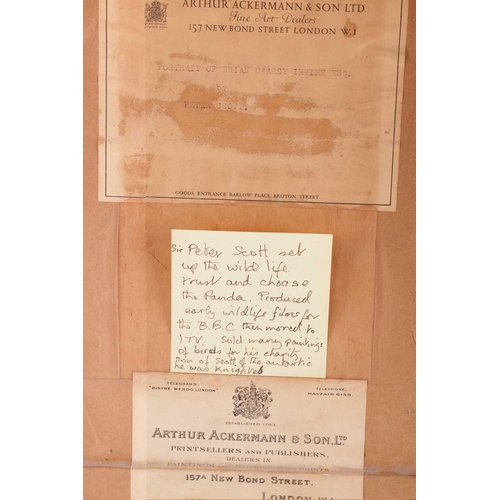 ARTHUR ACKERMANN & SON LTD
Fine Art Dealers
157 NEW BOND STREET LONDON W.1
PORTRAIT OF BRIAN ESQ.
BY
PETER SCOTT.
GOODS ENTRANCE BARLOW PLACE BRUTON STREET
Sir Peter Scott set
up the wild life
trust and choose
the Panda. Produced
early wildlife films for
the B.B.C then moved to
ITV. Sold many paintings
of birds for his charity,
son of Scott of the antartic
he was knighted
TELEGRAMS, TELEPHONE,
"BISTRE WESDO LONDON" MAYFAIR
ESTABLISHED 1783
ARTHUR ACKERMANN & SON, LTD
PRINTSELLERS AND PUBLISHERS,
DEALERS IN
157A NEW BOND STREET,
LONDON